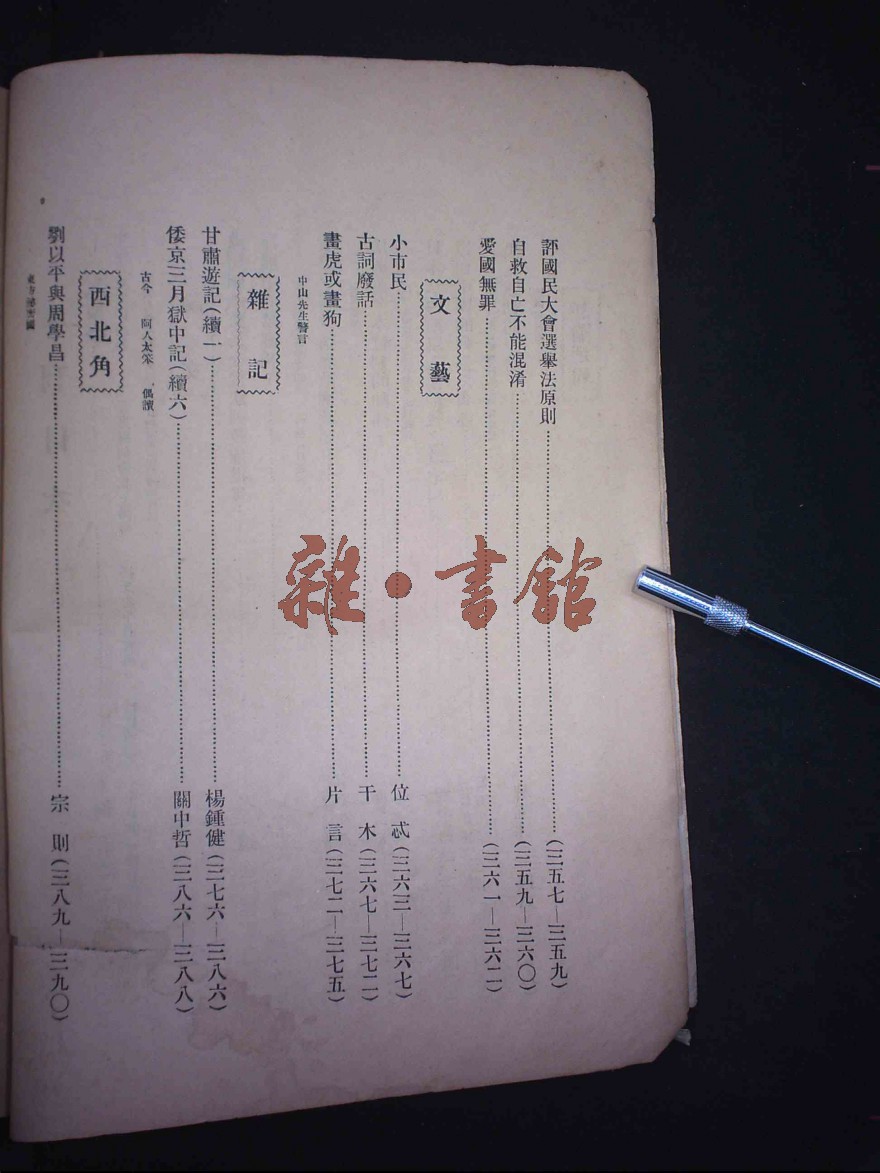 評國民大會選舉法原則…………(三五七—三五九)
自救自亡不能混淆…………(三五九—三六〇)
愛國無罪…………(三六一—三六二)
文藝
小市民…………位忒(三六三—三六七)
古詞廢話…………干木(三六七—三七二)
畫虎或畫狗…………片言(三七二—三七五)
中山先生警言
雜記
甘肅遊記(續一)…………楊鍾健(三七六—三八六)
倭京三月獄中記(續六)…………關中哲(三八六—三八八)
古今 阿人太笨 偶讀
西北角
劉以平與周學昌…………宗則(三八九—三九〇)
雜·書館